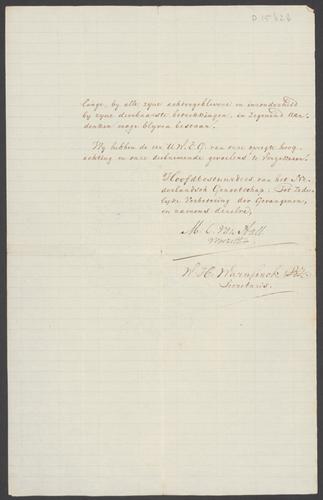 D 15828
lange, by alle zyne achtergeblevene en inzonderheid
by zyne dierbaarste betrekkingen, in zegenend aan-
denken moge blyven bestaan.
Wy hebben de eer U.W.E.G. van onze oprechte hoog
achting en onze deelnemende gevoelens te verzekeren.
Hoofdbestuurders van het Ne-
derlandsch Genootschap: Tot Zede-
lyke Verbetering der Gevangenen,
en namens dezelve,
M. C. Van Hall
Voorzitter
W. H. Warnsinck
Secretaris.